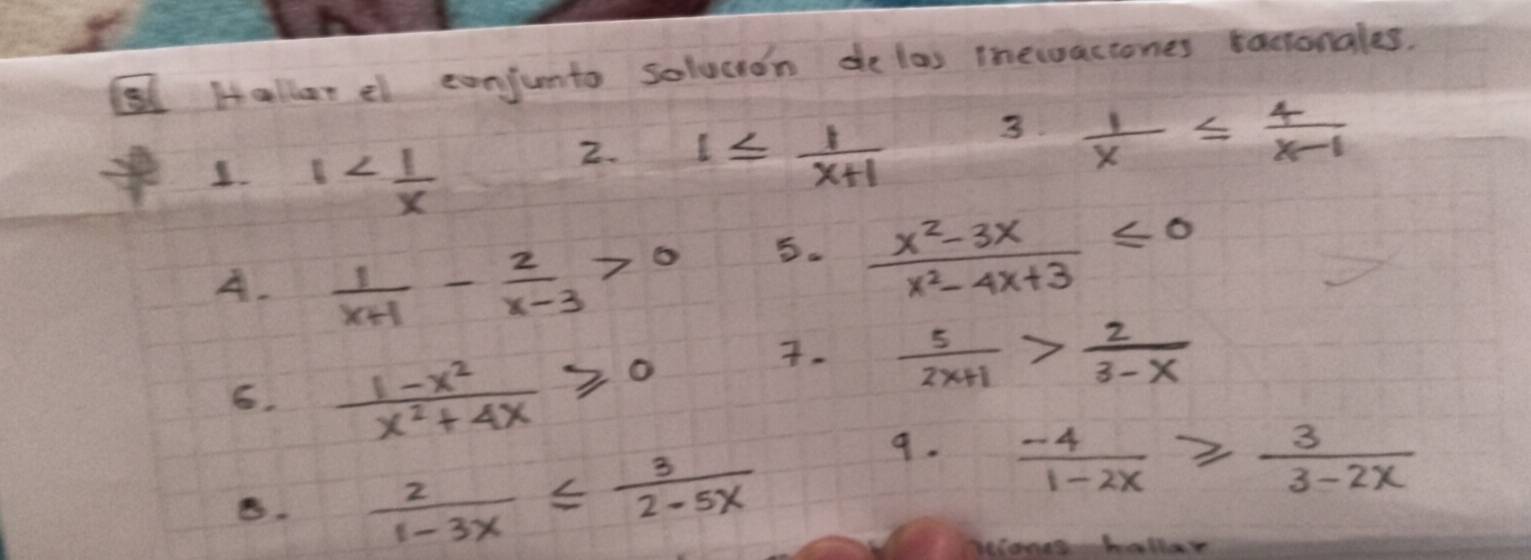 3 Hallar el conjunto solución de las inecuaciones racionales.
1. 1 < 1/x 2. 1 ≤ 1/(x+1) 3. 1/x ≤ 4/(x-1)
4. 1/(x+1) - 2/(x-3) > 0 5. (x²-3x)/(x²-4x+3) ≤ 0
6. (1-x²)/(x²+4x) ≥ 0 7. 5/(2x+1) > 2/(3-x)
8. 2/(1-3x) ≤ 3/(2-5x) 9. -4/(1-2x) ≥ 3/(3-2x)
hallar